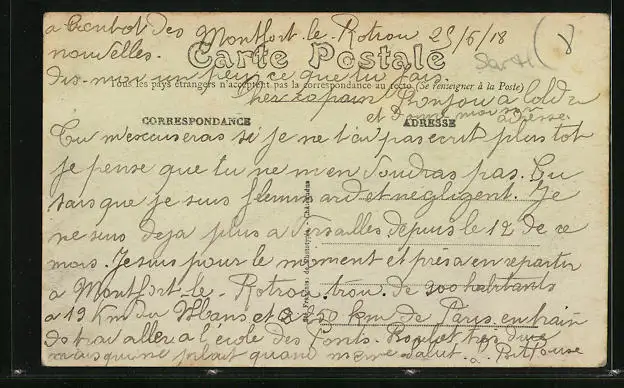 a bientot des Montfort-le-Rotrou 25/6/18
nouvelles.
Carte Postale
dis-moi un peu ce que tu fais.
Tous les pays étrangers n'acceptent pas la correspondance au recto (Se renseigner à la Poste)
Cher copain Bonjour a
et Donne moi son
CORRESPONDANCE ADRESSE adresse.
Tu m'excuseras si je ne t'ai pas ecrit plus tot
je pense que tu ne m'en voudras pas. Tu
sais que je suis flemmard et negligent. Je
ne suis deja plus a Versailles depuis le 12 de ce
mois. Je suis pour le moment et près a en repartir
a Montfort-le-Rotrou. trou. de 900 habitants
a 19 Km du Mans et a 50 km de Paris. en train
de travailler a l'école des Ponts. Boulot très dur
mais qui me plait quand même Salut.